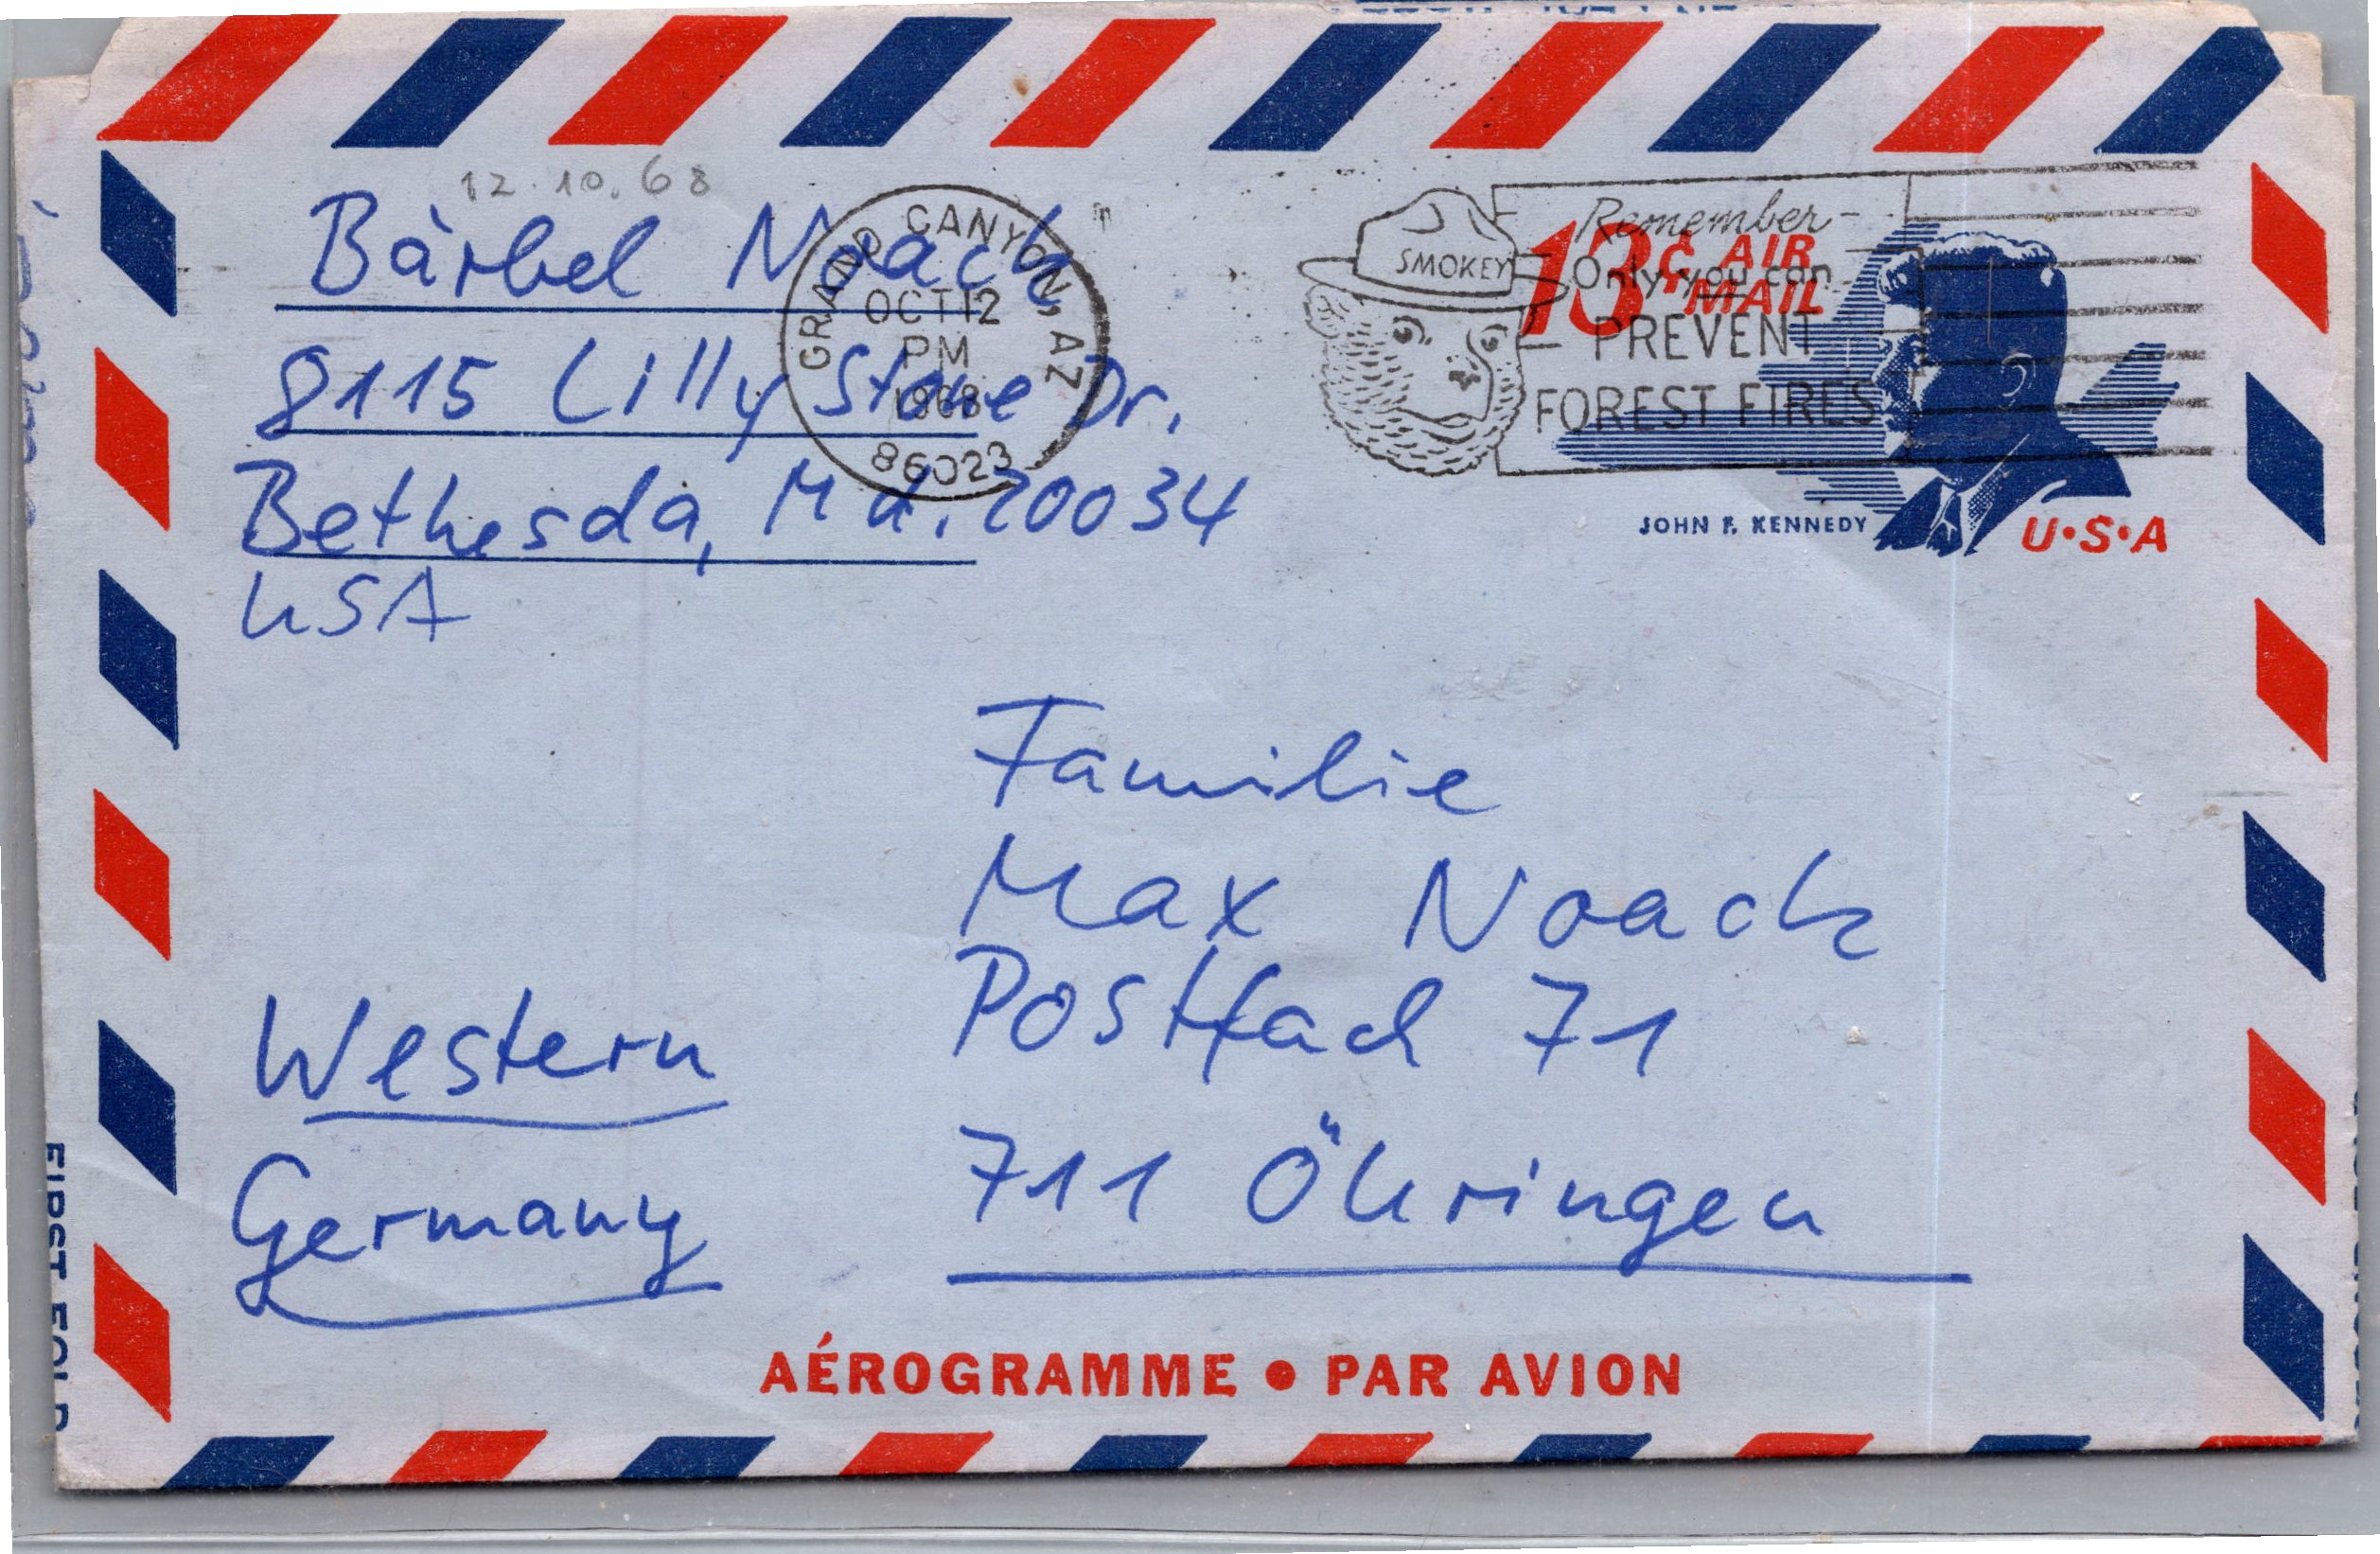 12.10.68
Bärbel Noack
8115 Lilly Stone Dr.
Bethesda, Md. 20034
USA
GRAND CANYON, AZ
OCT 12
PM
1968
86023
SMOKEY
Remember-
Only you can
PREVENT
FOREST FIRES
13¢ AIR
MAIL
JOHN F. KENNEDY
U·S·A
Familie
Max Noack
Postfach 71
711 Öhringen
Western
Germany
AÉROGRAMME • PAR AVION
FIRST FOLD